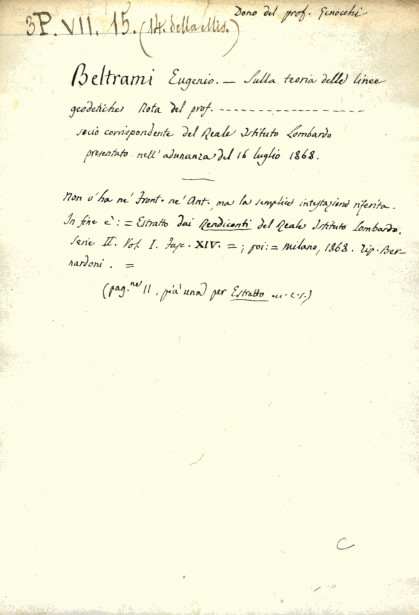 Dono del prof. Genocchi
3P. VII. 15. (14. della Mis.)
Beltrami Eugenio. — Sulla teoria delle linee
geodetiche Nota del prof. --------------------
socio corrispondente del Reale Istituto Lombardo
presentato nell'adunanza del 16 luglio 1868.
Non v'ha ne' Front. ne' Ant., ma la semplice intestazione riferita.
In fine è: = Estratto dai Rendiconti del Reale Istituto Lombardo.
Serie II. Vol. I. Fasc. XIV. =; poi: = Milano, 1868. Tip. Ber-
nardoni. =
(pag.ne 11, più una) per Estratto
C